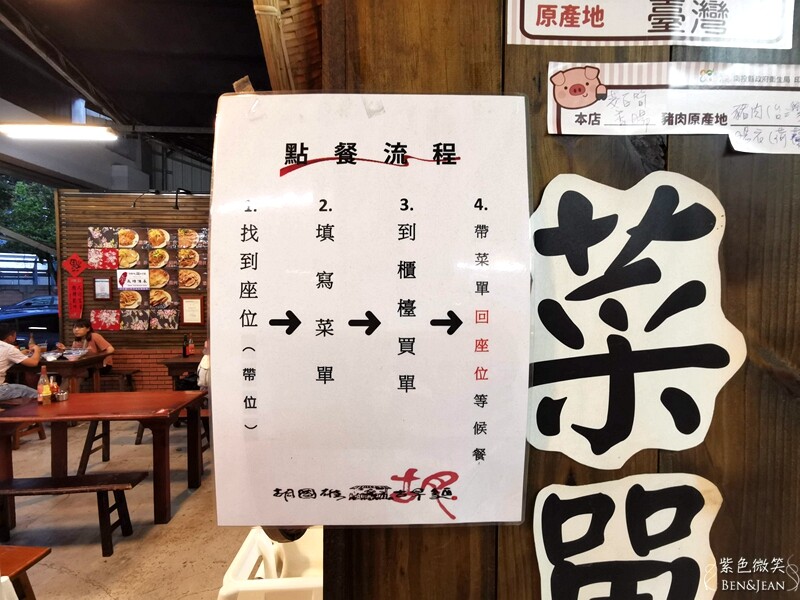 原產地
臺灣
本店
豬肉原產地
點餐流程
1.
找到座位（帶位）
2.
填寫菜單
3.
到櫃檯買單
4.
帶菜單回座位等候餐
胡
菜單
紫色微笑
BEN&JEAN